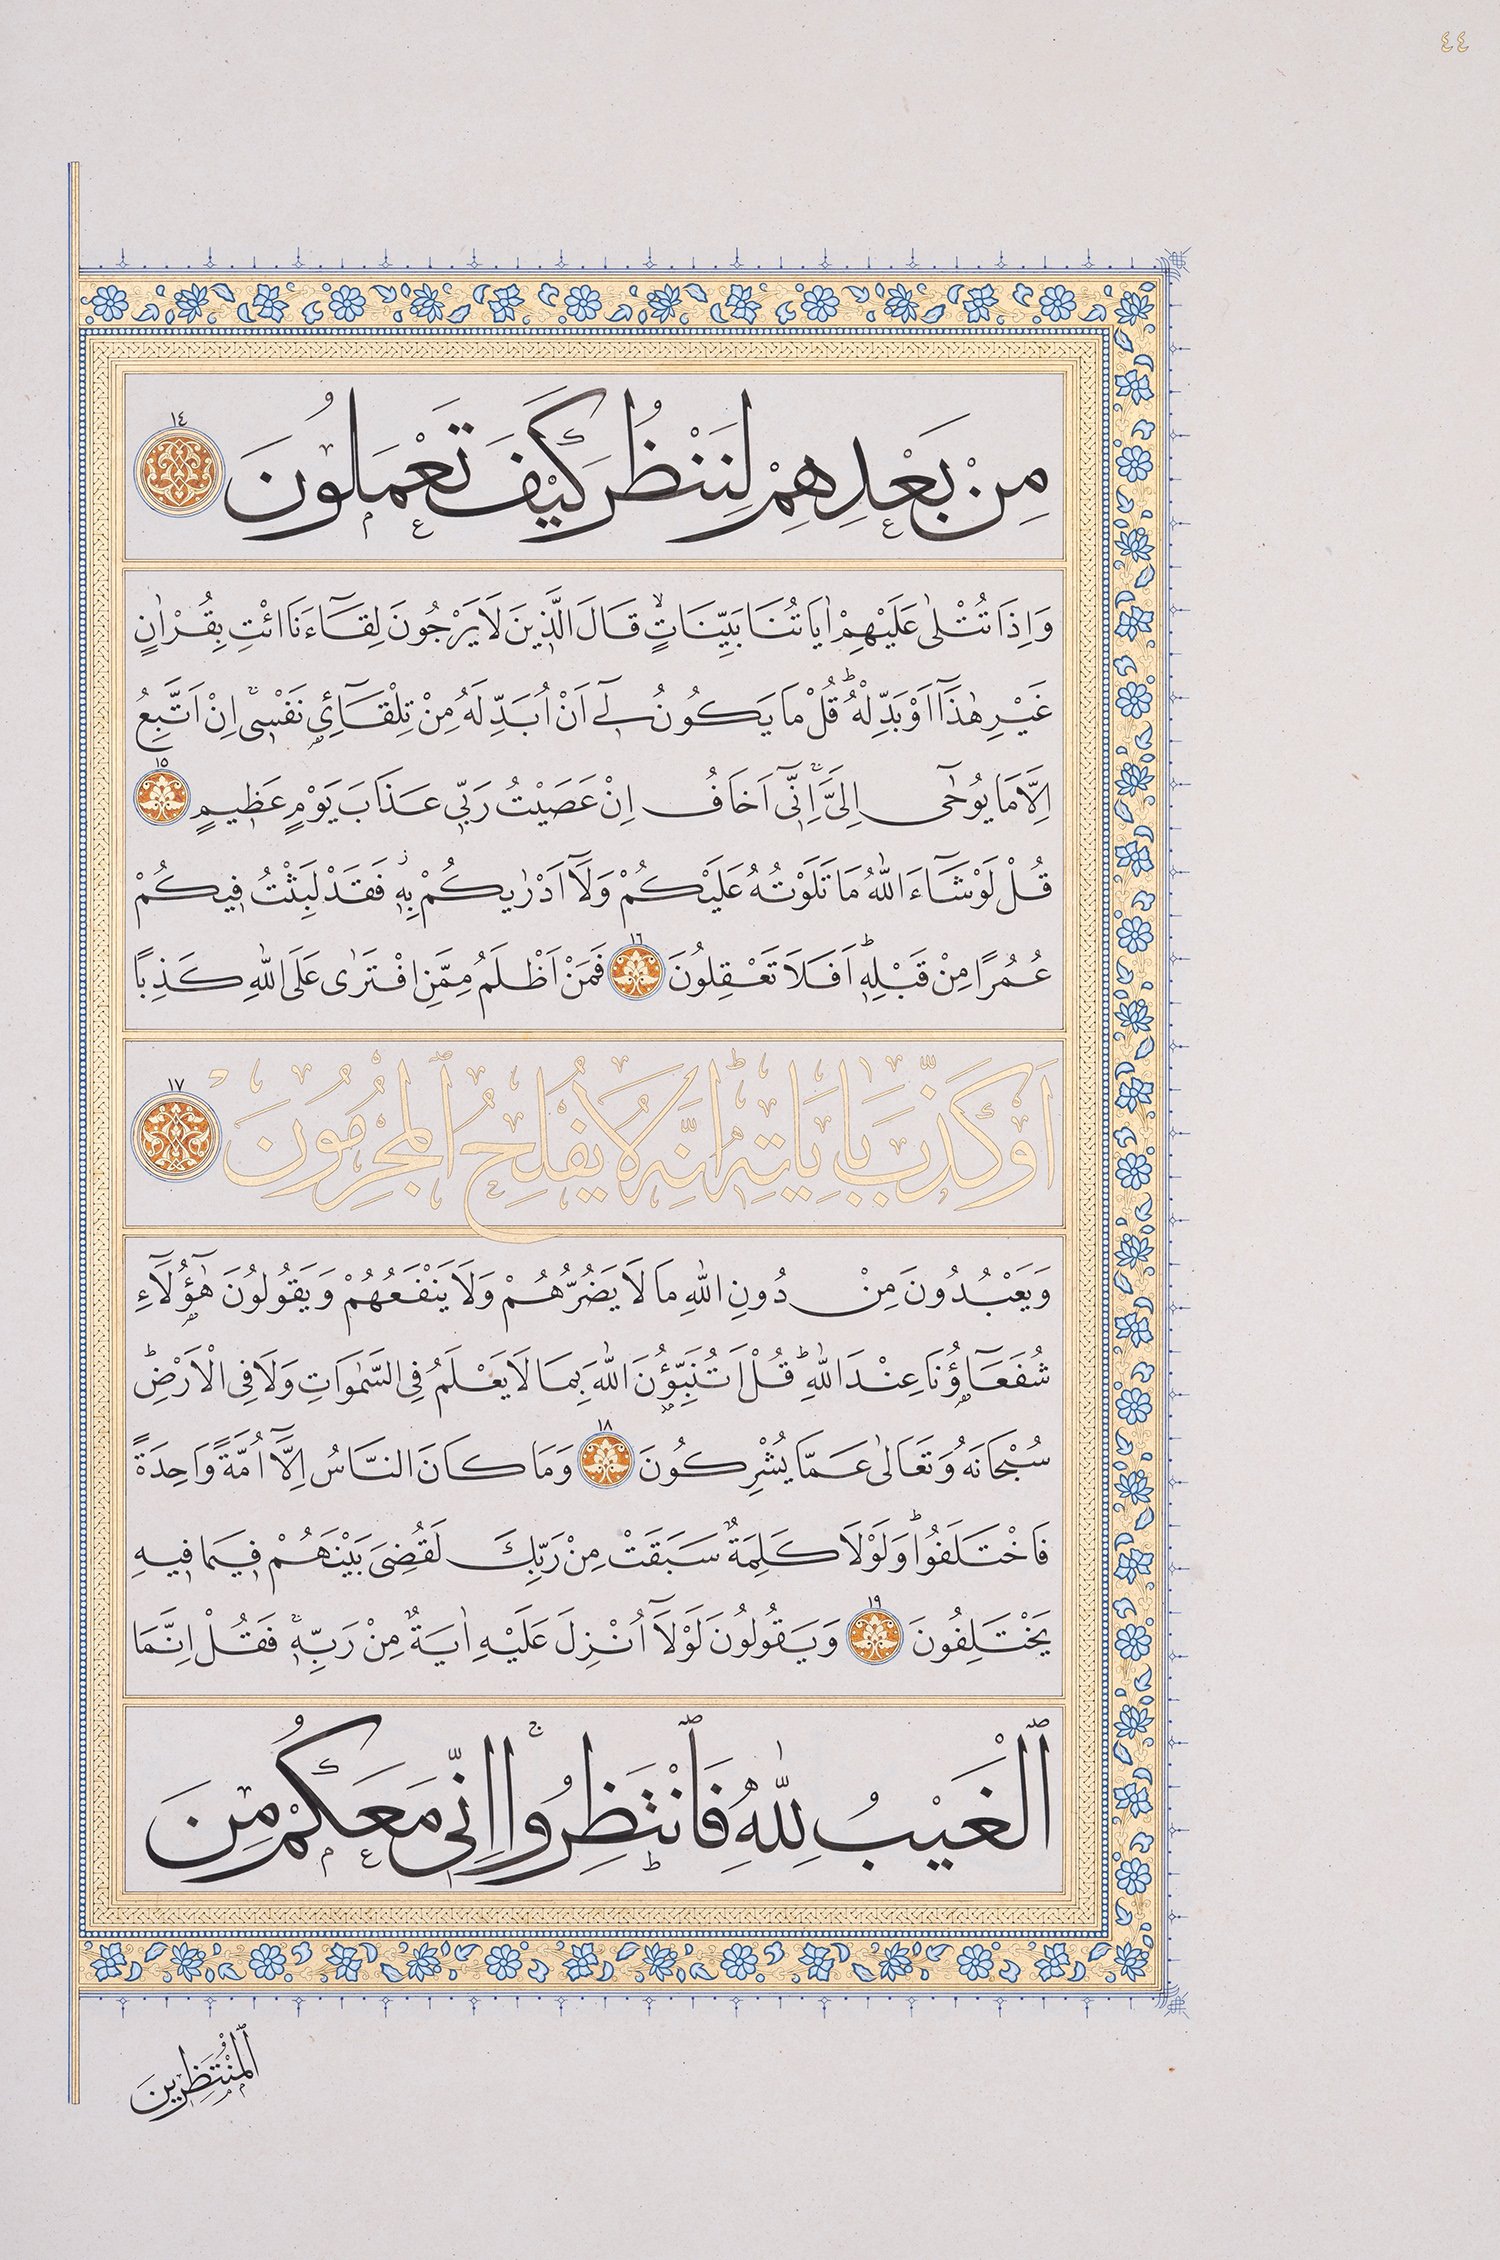 ٤٤
مِنْ بَعْدِهِمْ لِنَنْظُرَ كَيْفَ تَعْمَلُونَ ١٤
وَاِذَا تُتْلٰى عَلَيْهِمْ اٰيَاتُنَا بَيِّنَاتٍۙ قَالَ الَّذ۪ينَ لَا يَرْجُونَ لِقَٓاءَنَا ائْتِ بِقُرْاٰنٍ
غَيْرِ هٰذَٓا اَوْ بَدِّلْهُۜ قُلْ مَا يَكُونُ ل۪ٓي اَنْ اُبَدِّلَهُ مِنْ تِلْقَٓائِ۬ نَفْس۪يۚ اِنْ اَتَّبِعُ
اِلَّا مَا يُوحٰٓى اِلَيَّۚ اِنّ۪ٓي اَخَافُ اِنْ عَصَيْتُ رَبّ۪ي عَذَابَ يَوْمٍ عَظ۪يمٍ ١٥
قُلْ لَوْ شَٓاءَ اللّٰهُ مَا تَلَوْتُهُ عَلَيْكُمْ وَلَٓا اَدْرٰيكُمْ بِه۪ۘ فَقَدْ لَبِثْتُ ف۪يكُمْ
عُمُرًا مِنْ قَبْلِه۪ۜ اَفَلَا تَعْقِلُونَ ١٦ فَمَنْ اَظْلَمُ مِمَّنِ افْتَرٰى عَلَى اللّٰهِ كَذِبًا
اَوْ كَذَّبَ بِاٰيَاتِه۪ۜ اِنَّهُ لَا يُفْلِحُ الْمُجْرِمُونَ ١٧
وَيَعْبُدُونَ مِنْ دُونِ اللّٰهِ مَا لَا يَضُرُّهُمْ وَلَا يَنْفَعُهُمْ وَيَقُولُونَ هٰٓؤُ۬لَٓاءِ
شُفَعَٓاؤُ۬نَا عِنْدَ اللّٰهِۜ قُلْ اَتُنَبِّؤُ۫نَ اللّٰهَ بِمَا لَا يَعْلَمُ فِي السَّمٰوَاتِ وَلَا فِي الْاَرْضِۜ
سُبْحَانَهُ وَتَعَالٰى عَمَّا يُشْرِكُونَ ١٨ وَمَا كَانَ النَّاسُ اِلَّٓا اُمَّةً وَاحِدَةً
فَاخْتَلَفُواۜ وَلَوْلَا كَلِمَةٌ سَبَقَتْ مِنْ رَبِّكَ لَقُضِيَ بَيْنَهُمْ ف۪يمَا ف۪يهِ
يَخْتَلِفُونَ ١٩ وَيَقُولُونَ لَوْلَٓا اُنْزِلَ عَلَيْهِ اٰيَةٌ مِنْ رَبِّه۪ۚ فَقُلْ اِنَّمَا
الْغَيْبُ لِلّٰهِ فَانْتَظِرُواۚ اِنّ۪ي مَعَكُمْ مِنَ
الْمُنْتَظِر۪ينَ